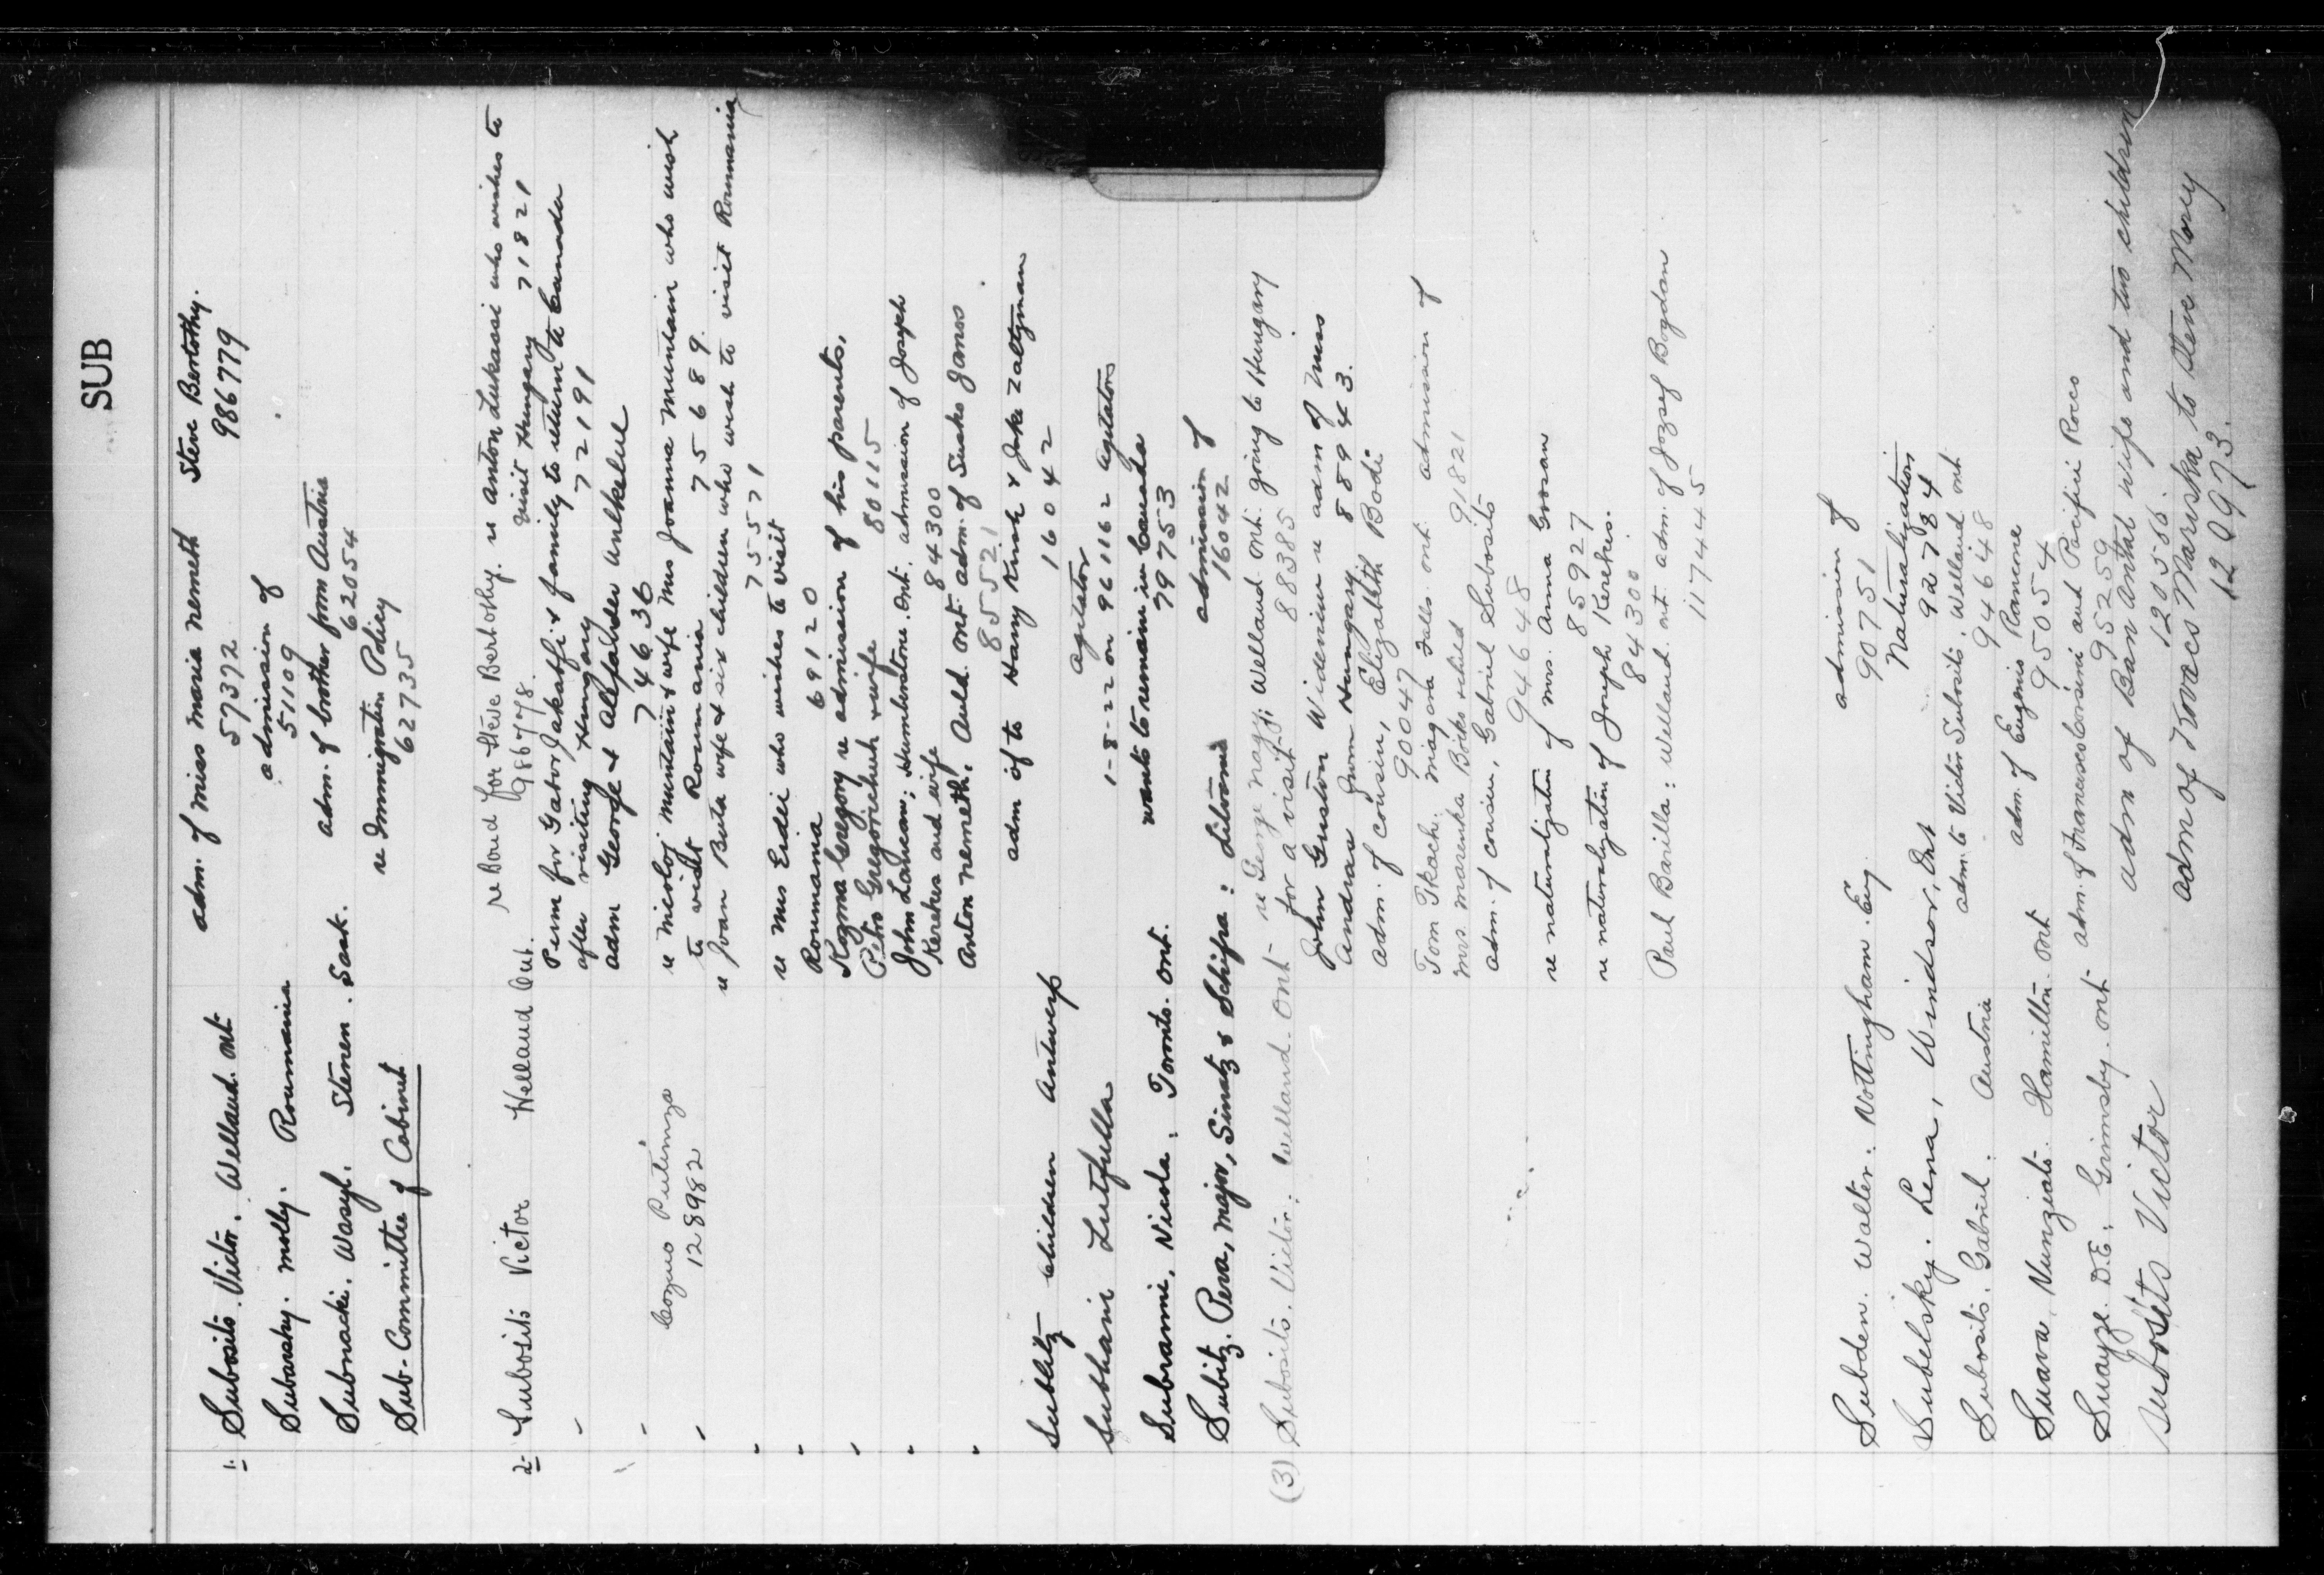 SUB
1. Subosits. Victor. Welland. Ont adm. of Miss Maria Nemeth Steve Bertothy.
57372 986779
Subarsky. Molly. Roumania admission of
51109
Subnacki. Wasyl. Stenen. Sask. adm. of brother from Austria
62054
Sub-Committee of Cabinet re Immigration Policy
62735
2. Subosits Victor Welland Ont. re Bond for Steve Bertothy. re Anton Lukassi who wishes to
986778. visit Hungary 71821
" Perm for Gabor Jakabfi & family to return to Canada
after visiting Hungary 72191
adm George & Alexander
74636
" Cozmo re Nicoloj Muntain & wife Mrs Joanna Muntain who wish
128982 to visit Roumania 75689.
" re Joan Buta wife & six children who wish to visit Roumania
75571
" re Mrs Erdei who wishes to visit
" Roumania 69120
" Kozma Gregory re admission of his parents,
Petro Gregorichuk & wife 80115
" John Langean; Humberstone. Ont. admission of Joseph
Kerekes and wife 84300
" Anton Nemeth. Auld. Ont. adm. of Susko Janos
85521
Subbitz children Antwerp adm of to Harry Kirsh & Jake Zaltzman
16042
Subhani Lutfulla agitator
1-8-22 on 961162 agitators
Subrami, Nicola. Toronto. Ont. wants to remain in Canada
79753
Subitz. Pera, Major, Sinatz & Schifra : admission of
16042
(3) Subosits. Victor. Welland. Ont - re George Nagy; Welland Ont. going to Hungary
for a visit 88385
John Guston Widenieu re adm of Mrs
Andras from Hungary. 88943.
adm. of cousin, Elizabeth Bodi
90047
Tom Tkach. Niagara Falls. Ont admission of
Mrs. Marenka Boiks & child 91821
adm. of cousin, Gabriel Subosits
94648
re naturalization of Mrs. Anna Grosan
85927
re naturalization of Joseph Kerekes.
84300
Paul Barilla: Welland. Ont. adm. of Jozsef Bogdan
117445
Subden. Walter. Nottingham. Eng. admission of
90751
Subelsky. Lena, Windsor, Ont Naturalization
92784
Subosits. Gabriel. Austria adm. to Victor Subosits, Welland Ont
94648
Suava. Nunziati. Hamilton. Ont adm. of Eugenio Ramcone
95054
Suayze. D.E. Grimsby. Ont adm. of Francesco Corsini and Pacifici Rocco
95259
Subosits Victor adm of Ban Antal wife and two children
120566
adm of Kovacs Mariska to Steve Morey
120973.